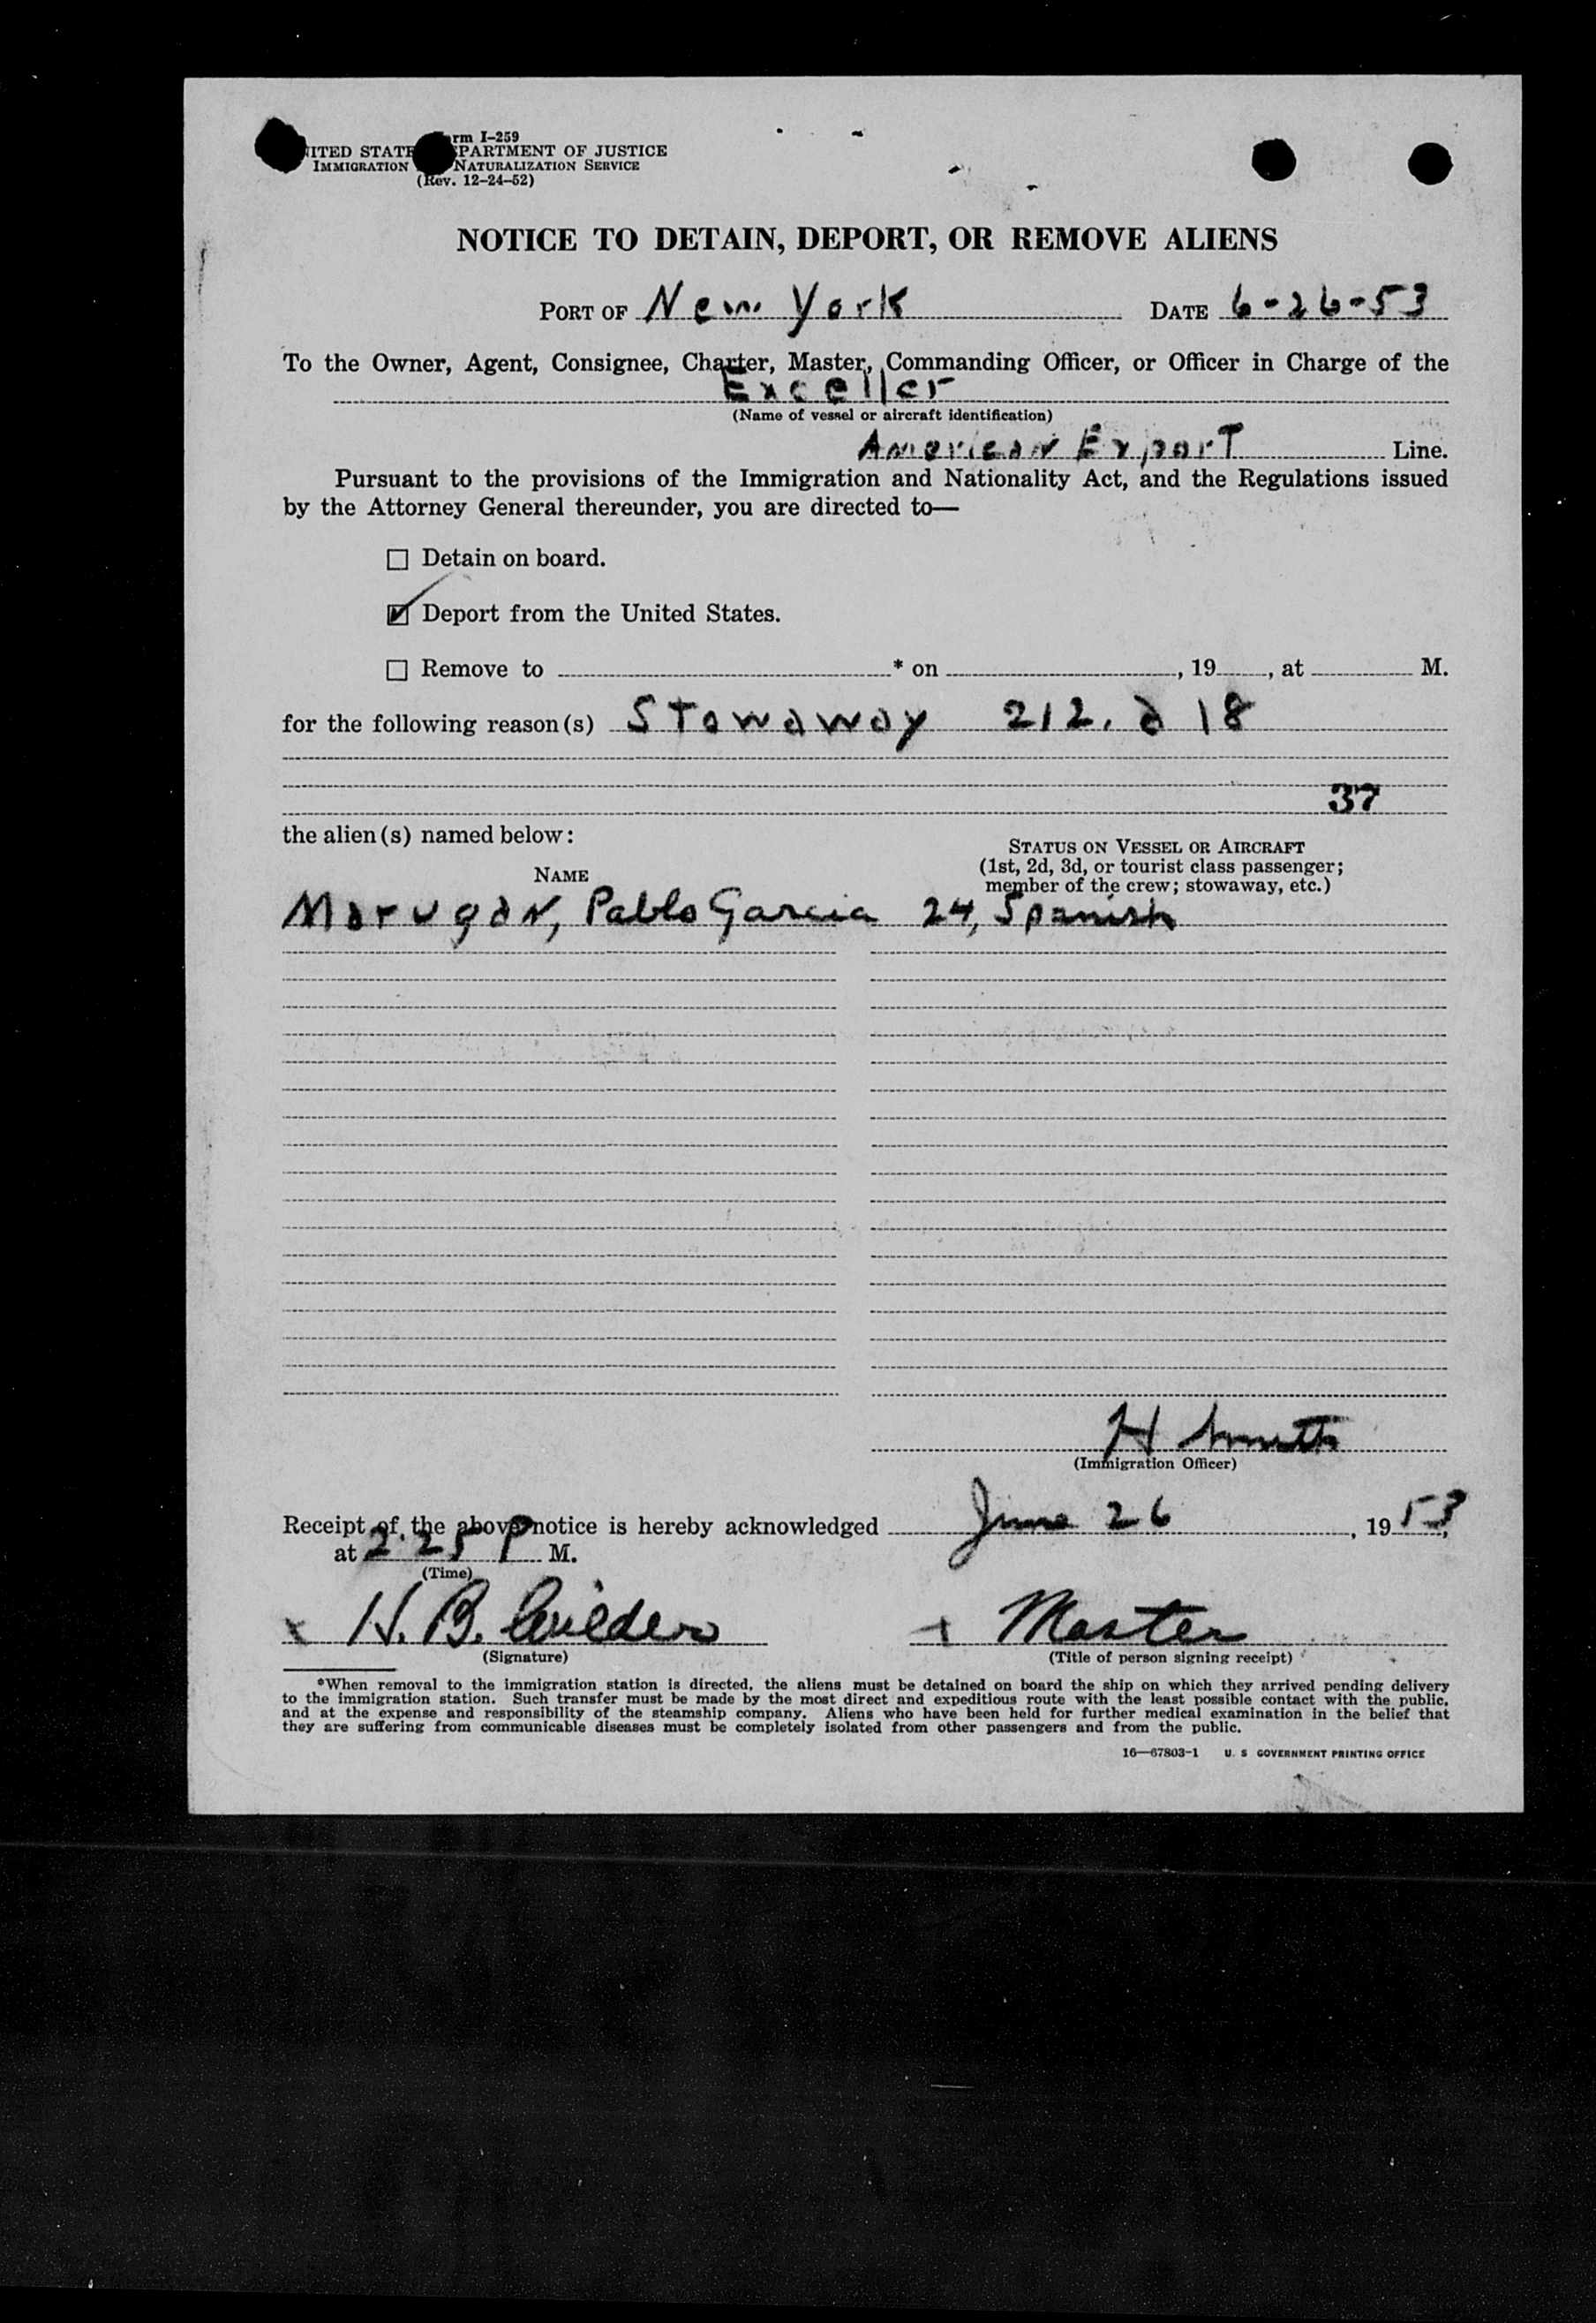 rm I-259
ITED STATE PARTMENT OF JUSTICE
IMMIGRATION NATURALIZATION SERVICE
(Rev. 12-24-52)
NOTICE TO DETAIN, DEPORT, OR REMOVE ALIENS
PORT OF New York DATE 6-26-53
To the Owner, Agent, Consignee, Charter, Master, Commanding Officer, or Officer in Charge of the
Exceller
(Name of vessel or aircraft identification)
American Export Line.
Pursuant to the provisions of the Immigration and Nationality Act, and the Regulations issued
by the Attorney General thereunder, you are directed to—
☐ Detain on board.
☑ Deport from the United States.
☐ Remove to * on , 19 , at M.
for the following reason(s) Stowaway 212. a 18
37
the alien(s) named below:
STATUS ON VESSEL OR AIRCRAFT
(1st, 2d, 3d, or tourist class passenger;
member of the crew; stowaway, etc.)
NAME
Marugan, Pablo Garcia 24, Spanish
H Smith
(Immigration Officer)
Receipt of the above notice is hereby acknowledged June 26, 1953,
at 2.25 P M.
(Time)
x H. B. Wilder x Master
(Signature) (Title of person signing receipt)
*When removal to the immigration station is directed, the aliens must be detained on board the ship on which they arrived pending delivery
to the immigration station. Such transfer must be made by the most direct and expeditious route with the least possible contact with the public,
and at the expense and responsibility of the steamship company. Aliens who have been held for further medical examination in the belief that
they are suffering from communicable diseases must be completely isolated from other passengers and from the public.
16—67803-1 U. S GOVERNMENT PRINTING OFFICE